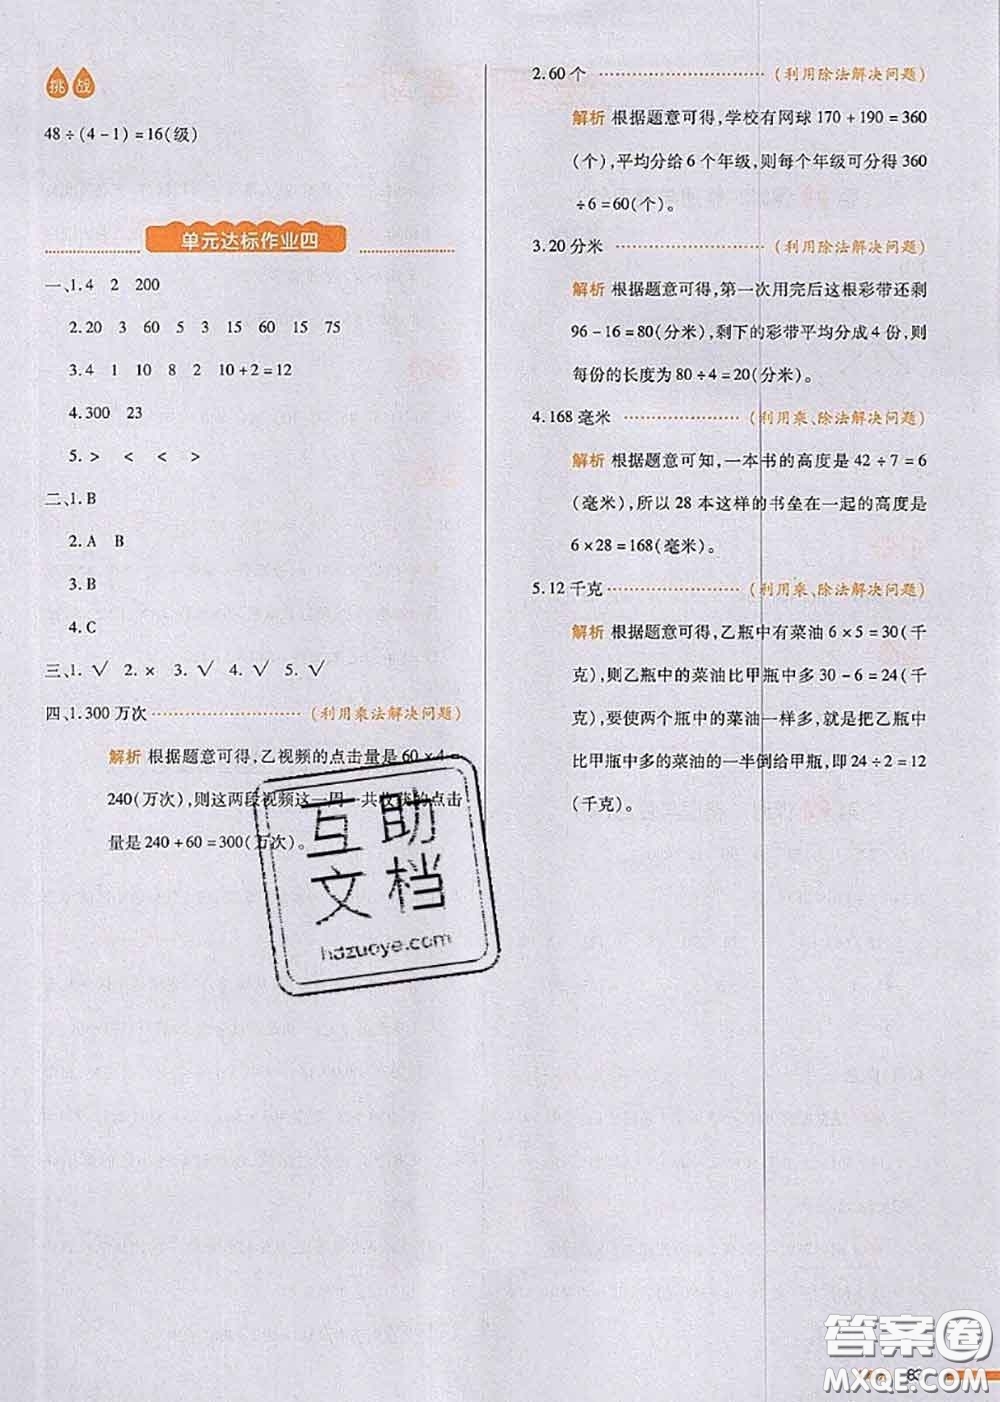 挑战
48÷(4-1)=16(级)
单元达标作业四
一、1.4 2 200
2.20 3 60 5 3 15 60 15 75
3.4 1 10 8 2 10+2=12
4.300 23
5.> < < >
二、1.B
2.A B
3.B
4.C
三、1.√ 2.× 3.√ 4.√ 5.√
四、1.300万次 (利用乘法解决问题)
解析 根据题意可得,乙视频的点击量是60×4=
240(万次),则这两段视频这一周一共收获的点击
量是240+60=300(万次)。
2.60个 (利用除法解决问题)
解析 根据题意可得,学校有网球170+190=360
(个),平均分给6个年级,则每个年级可分得360
÷6=60(个)。
3.20分米 (利用除法解决问题)
解析 根据题意可得,第一次用完后这根彩带还剩
96-16=80(分米),剩下的彩带平均分成4份,则
每份的长度为80÷4=20(分米)。
4.168毫米 (利用乘、除法解决问题)
解析 根据题意可知,一本书的高度是42÷7=6
(毫米),所以28本这样的书垒在一起的高度是
6×28=168(毫米)。
5.12千克 (利用乘、除法解决问题)
解析 根据题意可得,乙瓶中有菜油6×5=30(千
克),则乙瓶中的菜油比甲瓶中多30-6=24(千
克),要使两个瓶中的菜油一样多,就是把乙瓶中
比甲瓶中多的菜油的一半倒给甲瓶,即24÷2=12
(千克)。
互助
文档
hdzuoye.com
答案圈
MXQE.COM
83